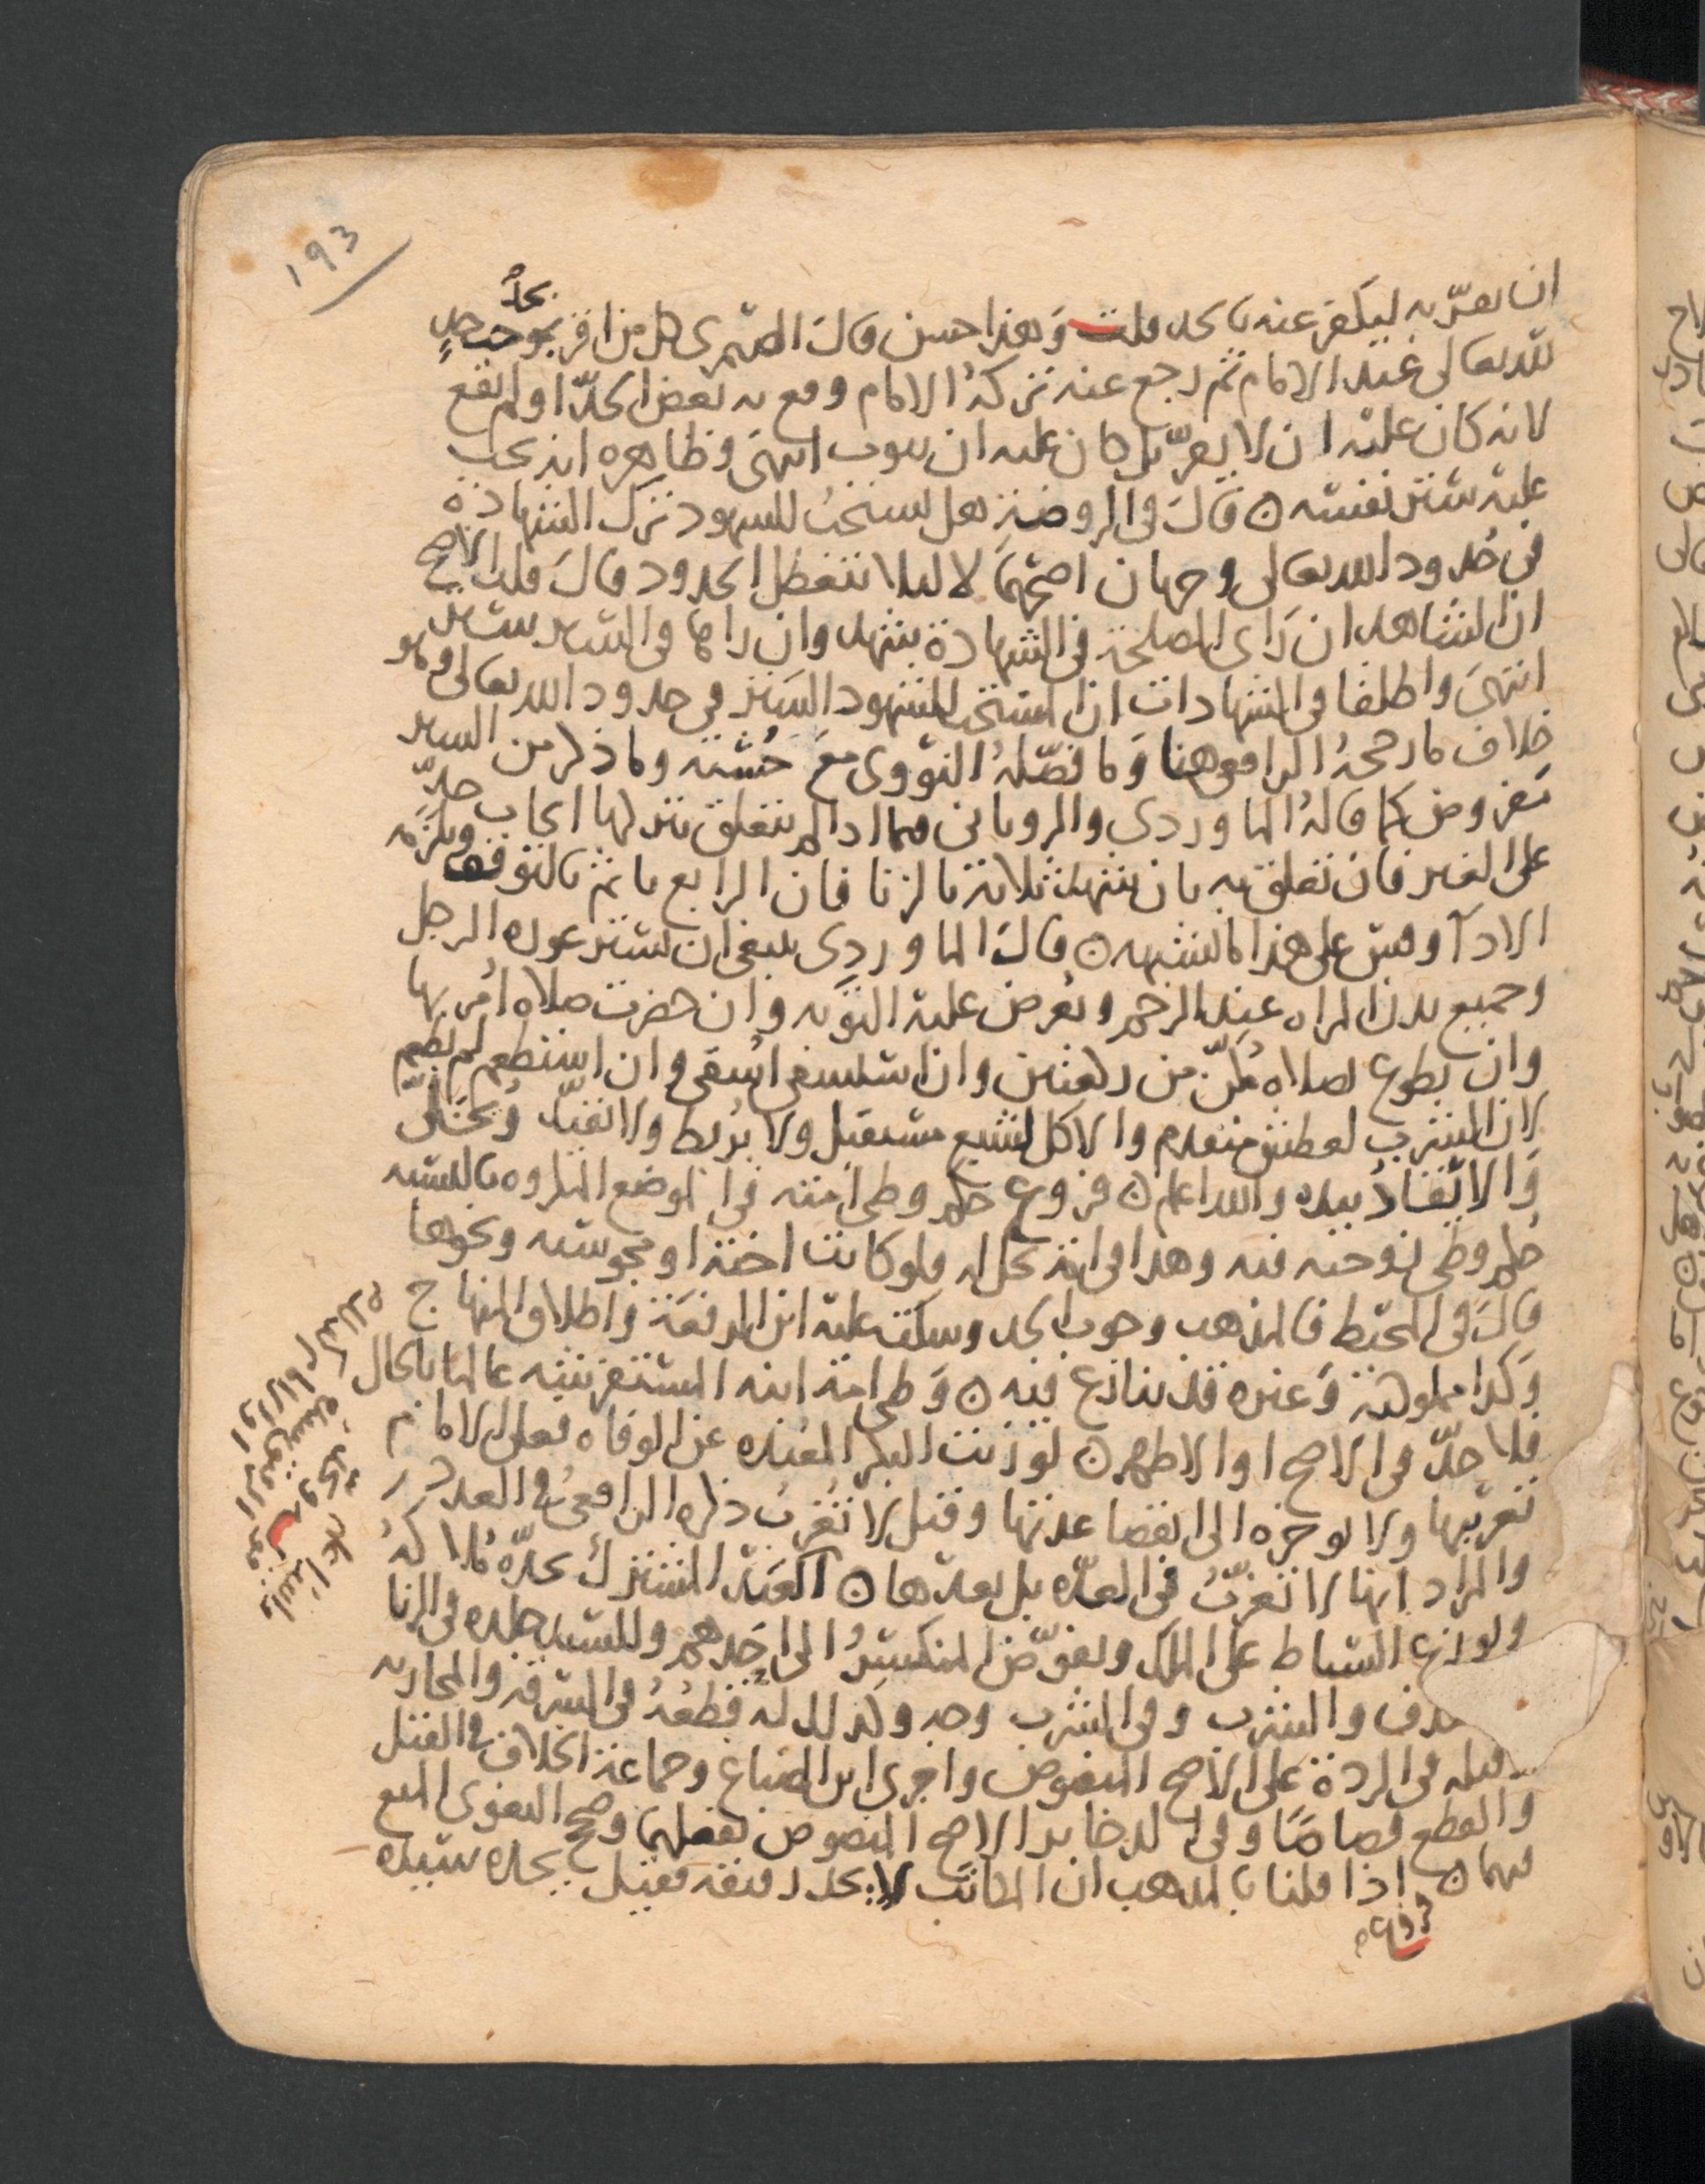 193
ان يقرّ به ليكفر عنه بالحد قلت وهذا حسن قال الصيمرى كل من اقر بموجب حدٍ
بحدٍ
لله تعالى عند الامام ثم رجع عنه تركه الامام وقع به بعض الحدّ او لم يقع
لانه كان عليه ان لا يقرّ بل كان عليه ان يتوب انتهى وظاهره انه يجب
عليه ستر نفسه ن قال فى الروضة هل يستحب للشهود ترك الشهادة
فى حدود الله تعالى وجهان اصحهما لا ليلا تتعطل الحدود قال قلت الاصح
ان الشاهد ان راى المصلحة فى الشهادة شهد وان راها فى الستر ستر
انتهى واطلقا فى الشهادات ان المستحب للشهود الستر فى حدود الله تعالى وهو
خلاف ما رجحه الرافعى هنا وما فصّله النووى مع حسنه وما ذكر من الستر
مفروض كما قاله الماوردى والرويانى فيما اذا لم يتعلق بتركها ايجاب حدّ
على الغير فان تعلق به بان شهد ثلاثة بالزنا فان الرابع ياثم بالتوقف ويلزمه
الادآ وقس على هذا ما يشبهه ن قال الماوردى ينبغى ان يستر عورة الرجل
وجميع بدن المراه عند الرجم ويعرض عليه التوبه وان حضرت صلاه امر بها
وان تطوع لصلاه مُكّن من ركعتين وان استسقى اسقى وان استطعم لم يطعم
لان الشرب لعطش متقدم والاكل لشبع مستقبل ولا يربط ولا يقيد ويخلّى
والاتقاء بيده والله اعلم ن فروع حكم وطى امته فى الموضع المكروه بالنسبه
حكم وطى زوجته فيه وهذا فى امة تحل له فلو كانت اخته او مجوسيه ونحوها
قال فى المحيط فالمذهب وجوب الحد وسكت عليه ابن الرفعة واطلاق المنهاج
وكذا مملوكته وغيره قد ينازع فيه ن وطى امة ابنه المستفرشه عالما بالحال
فلا حدّ فى الاصح او الاظهر ن لو زنت البكر المعتده عن الوفاه فعلى الامام
تغريبها ولا يوخره الى انقضا عدتها وقيل لا تغرب ذكره الرافعى فى العدد
والمراد انها لا تغرّب فى العدّه بل بعدها ن العبد المشترك يحدّه ملاكه
ويوزع السياط على الملك ويفوّض المنكسر الى احدهم وللسيد جلده فى الزنا
والشرب وفى الشرب وجه وكذلك له قطعه فى السرقه والمحاربه
وقتله فى الردة على الاصح المنصوص واجرى ابن الصباغ وجماعة الخلاف فى القتل
والقطع قصاصًا وفى الاصح المنصوص وصحح البغوى المنع
فيهما ن اذا قلنا بالمذهب ان المكاتب لا يحد رقيقه فقيل يحده سيده